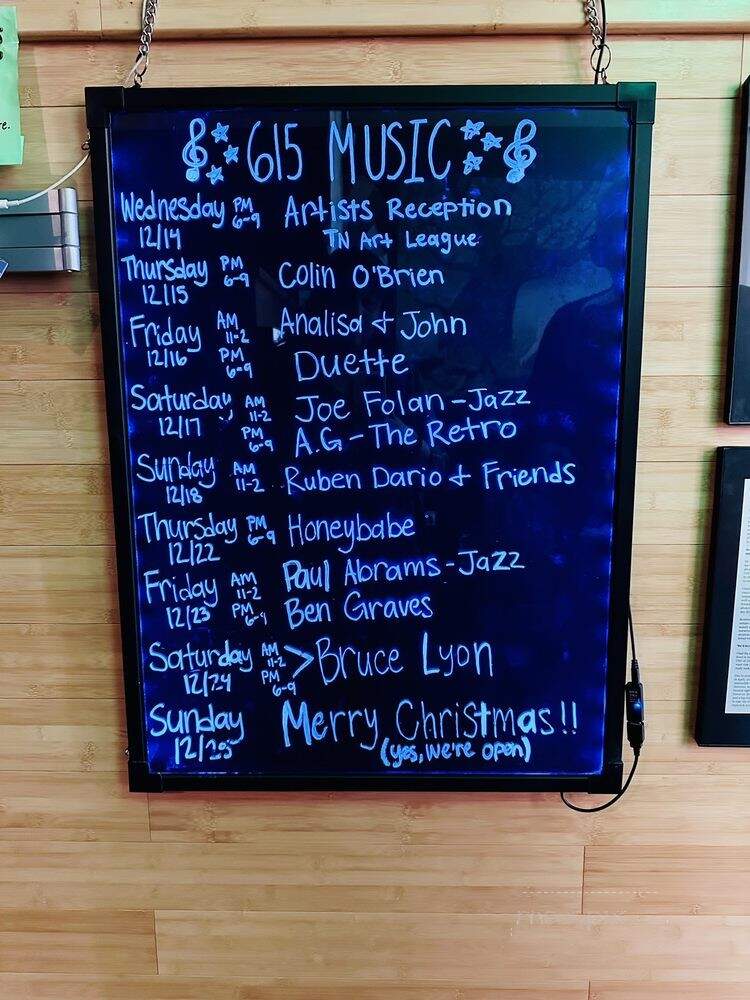 615 MUSIC
Wednesday PM 6-9 Artists Reception
12/14 TN Art League
Thursday PM 6-9 Colin O'Brien
12/15
Friday AM 11-2 Analisa + John
12/16 PM 6-9 Duette
Saturday AM 11-2 Joe Folan - Jazz
12/17 PM 6-9 A.G - The Retro
Sunday AM 11-2 Ruben Dario + Friends
12/18
Thursday PM 6-9 Honeybabe
12/22
Friday AM 11-2 Paul Abrams - Jazz
12/23 PM 6-9 Ben Graves
Saturday AM 11-2 > Bruce Lyon
12/24 PM 6-9
Sunday Merry Christmas!!
12/25 (yes, we're open)